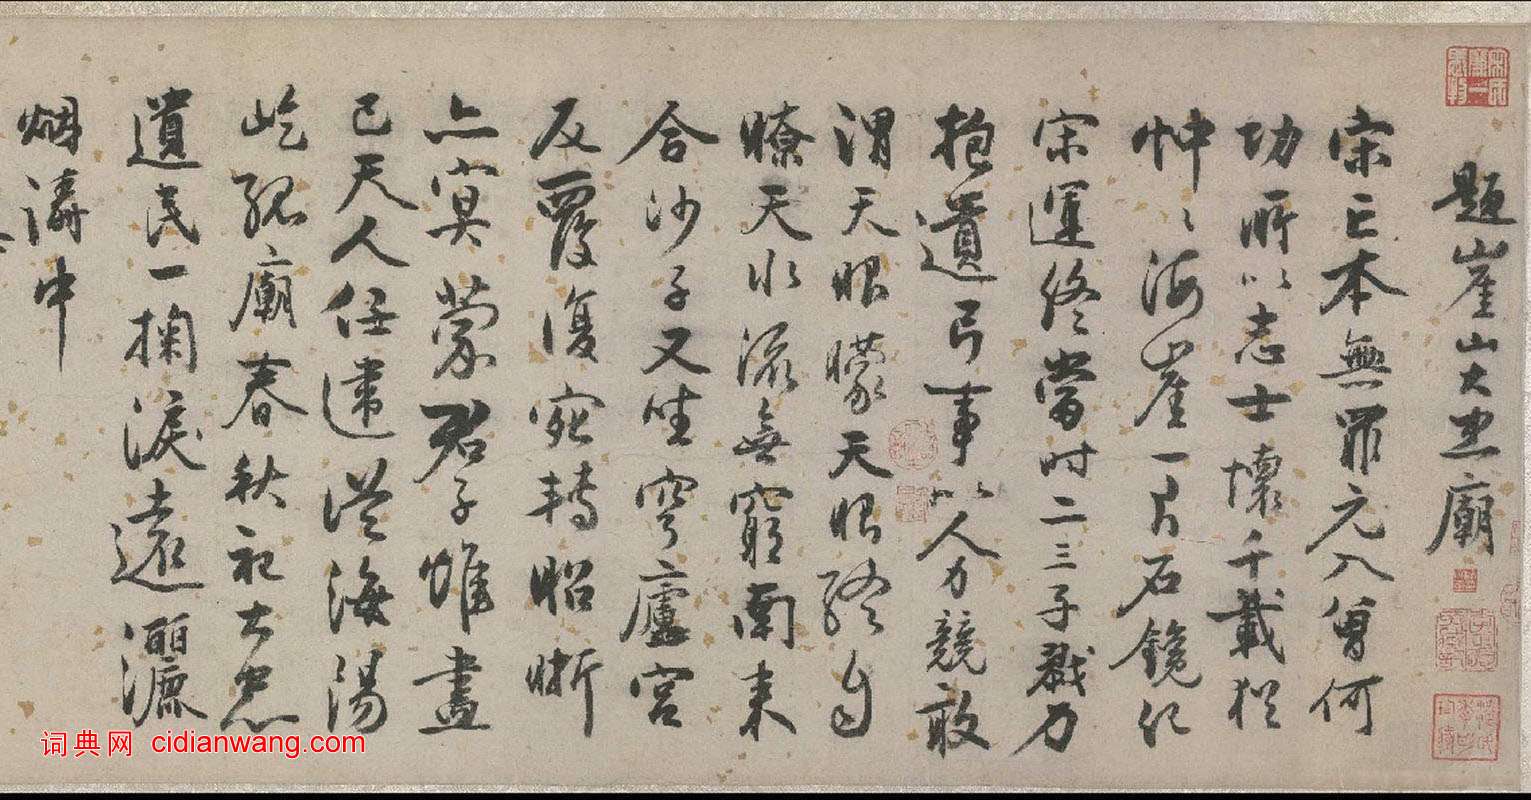 題崖山大忠廟
宋亡本無罪元入曾何
功所以志士懷千載猶
忡〻海崖一片石鐫紀
宋運終當時二三子戮力
抱遺弓事以人力競敢
謂天眼矇天眼終自
瞭天水流無窮南來
合沙子又坐穹廬宮
反覆復宛轉昭晰
亦冥蒙君子惟盡
已天人任違從海湯
屹孤廟春秋祀大忠
遺民一掬淚遠灑
烟濤中
词典网 cidianwang.com